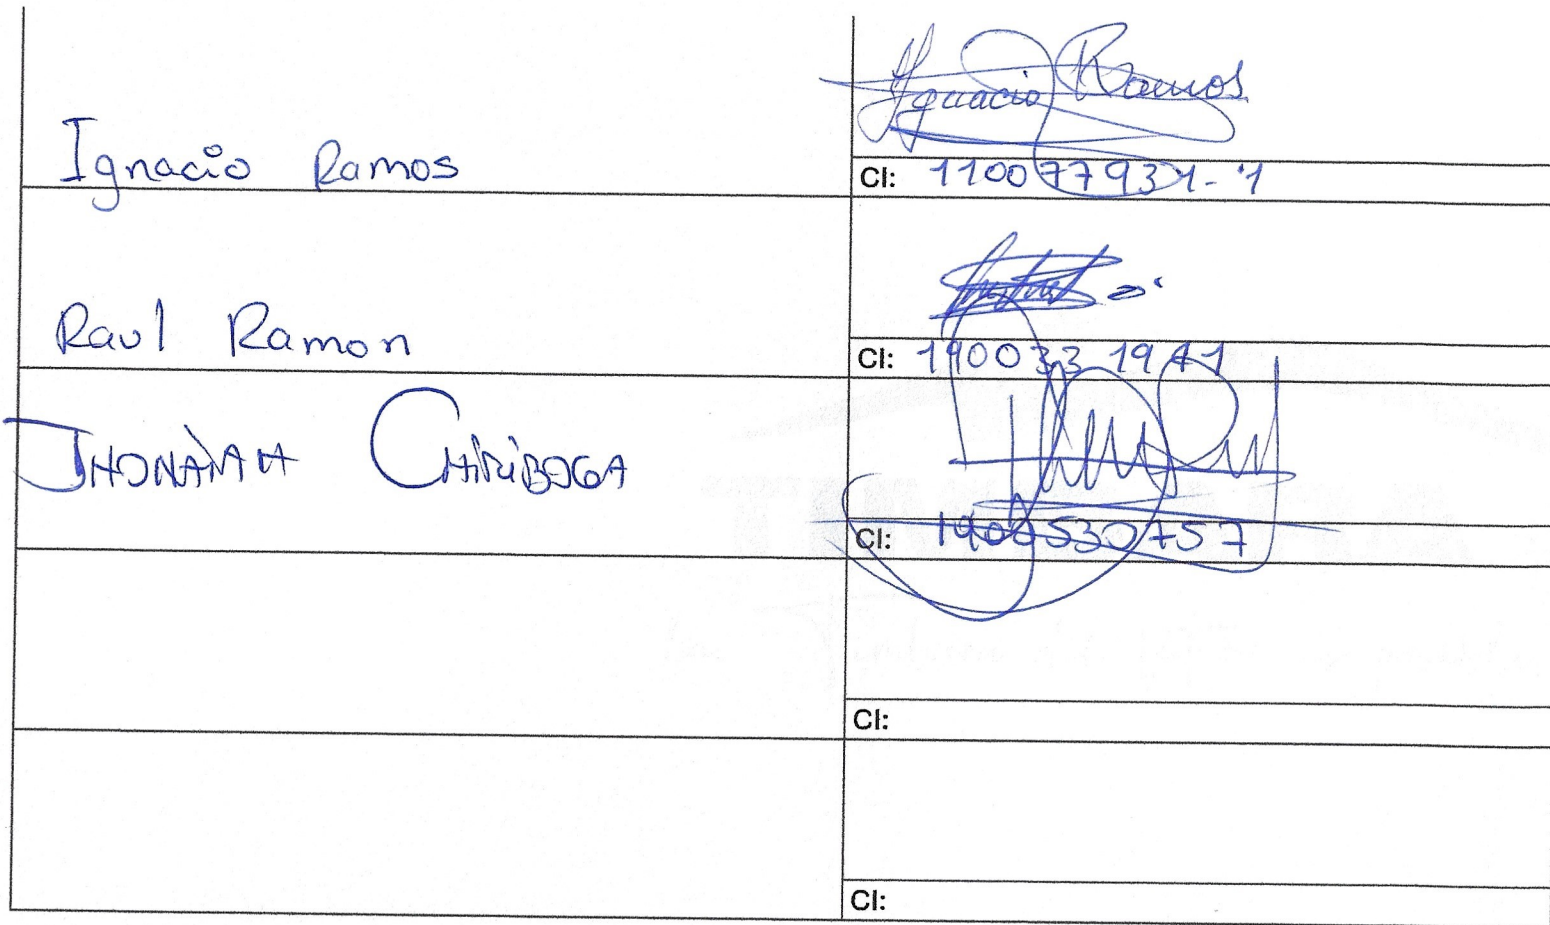 Ignacio Ramos
Ignacio Ramos
CI: 110077931-1
Raul Ramon
CI: 1900331941
CHIRIBOGA
CI: 1900530757
CI:
CI: